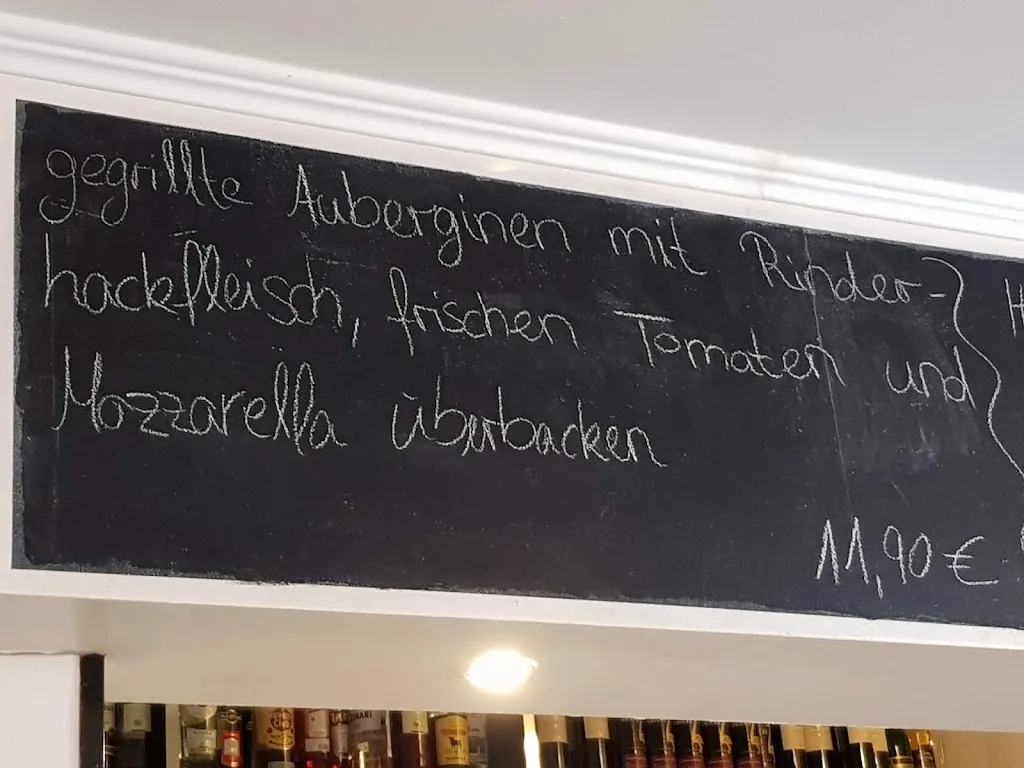 gegrillte Auberginen mit Rinder-
hackfleisch, frischen Tomaten und
Mozzarella überbacken
11,90 €